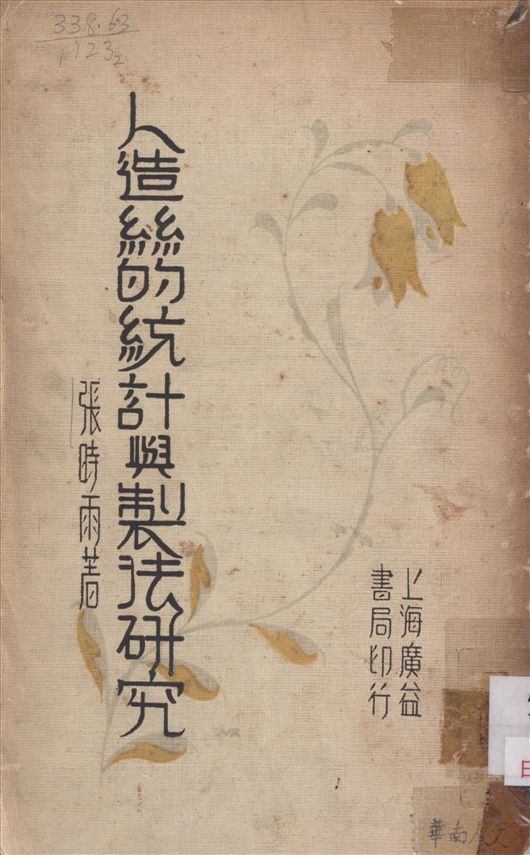 338.63
123₂
人造絲的統計與製法研究
張時雨著
上海廣益
書局印行
華南
文